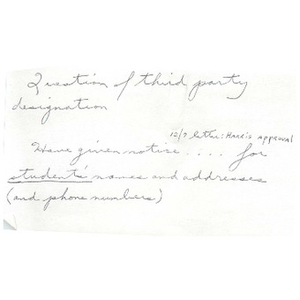 Question of third party
designation
12/7 letter: Harris approval
Have given notice . . . . for
student's names and addresses
(and phone numbers)